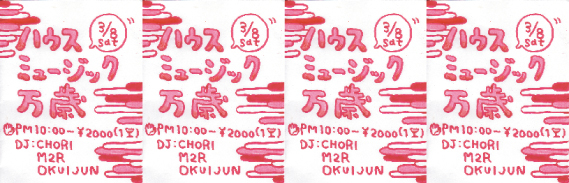 3/8
sat
ハウス
ミュージック
万歳
PM10:00~¥2000(1D)
DJ:CHORI
M2R
OKUIJUN
3/8
sat
ハウス
ミュージック
万歳
PM10:00~¥2000(1D)
DJ:CHORI
M2R
OKUIJUN
3/8
sat
ハウス
ミュージック
万歳
PM10:00~¥2000(1D)
DJ:CHORI
M2R
OKUIJUN
3/8
sat
ハウス
ミュージック
万歳
PM10:00~¥2000(1D)
DJ:CHORI
M2R
OKUIJUN